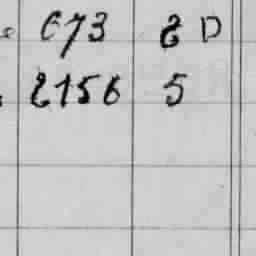 673 8 D
2156 5